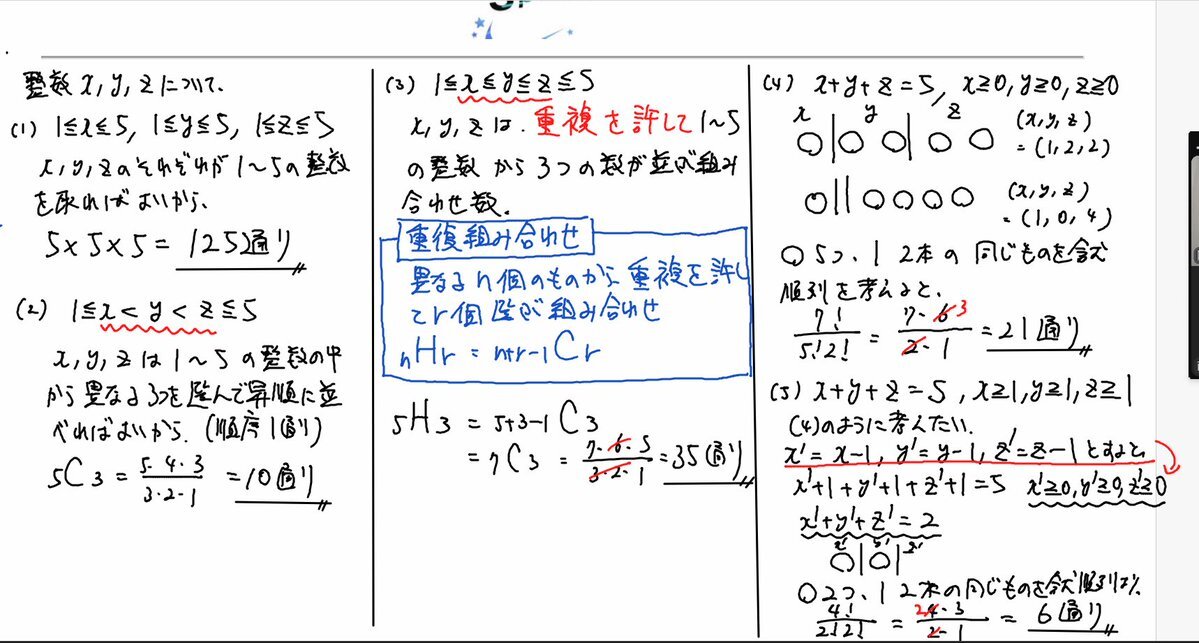 整数 x, y, z について.
(1) 1≦x≦5, 1≦y≦5, 1≦z≦5
x, y, zのそれぞれが1〜5の整数
を取ればよいから.
5×5×5 = 125通り
(2) 1≦x<y<z≦5
x, y, z は 1〜5 の整数の中
から異なる3つを選んで昇順に並
べればよいから. (順序1通り)
5C3 = 5・4・3/3・2・1 = 10通り
(3) 1≦x≦y≦z≦5
x, y, z は. 重複を許して1〜5
の整数から3つの数が並ぶ組み
合わせ数.
重復組み合わせ
異なるn個のものから重複を許し
てr個選ぶ組み合わせ
nHr = n+r-1Cr
5H3 = 5+3-1C3
= 7C3 = 7・6・5/3・2・1 = 35通り
(4) x+y+z=5, x≥0, y≥0, z≥0
x y z
○|○ ○|○ ○ (x,y,z)
= (1,2,2)
○||○○○○ (x,y,z)
= (1,0,4)
○5つ、| 2本の同じものを含む
順列を考えると、
7!/5!2! = 7・6 3/2・1 = 21通り
(5) x+y+z=5, x≥1, y≥1, z≥1
(4)のように考えたい.
x'=x-1, y'=y-1, z'=z-1とすると
x'+1+y'+1+z'+1=5 x'≥0, y'≥0, z'≥0
x'+y'+z'=2
x' y' z'
○|○|
○2つ、| 2本の同じものを含む順列は、
4!/2!2! = 2 4・3/2・1 = 6通り